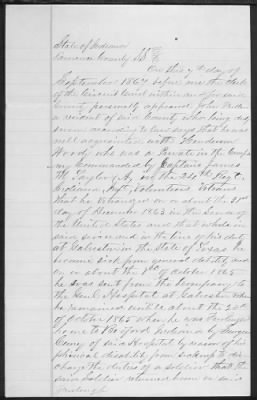 State of Indiana
Lawrence County SS
On this 7th day of
September 1867 before me the Clerk
of the Circuit Court within and for said
County personally appeared John
a resident of said County who being duly
sworn according to law says that he was
well acquainted with Henderson
Woody who was a in the Company
commanded by Captain James
H. Taylor (A) in the Regt
Indiana Volunteers Veterans
That he Veteranized on or about the 31st
day of December 1863 in the Service of
the United States and that while in
said service and in the line of his duty
at Galveston in the State of Texas he
became sick from general debility and
on or about the 1st of October 1865
he was sent from the Company to
the Genl. Hospital at Galveston where
he remained until about the 20th
of October 1865 when he was furloughed
home to Bedford Indiana by Surgeon
of said Hospital by reason of his
physical disability from sickness to dis-
charge the duties of a soldier That the
said soldier returned home on said
Furlough